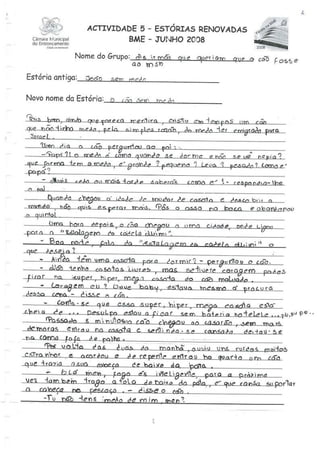 ACTIVIDADE 5 – ESTÓRIAS RENOVADAS
BME – JUNHO 2008
Câmara Municipal
do Entroncamento
2008
Nome do Grupo: As irmãs que queriam que o cão fosse
ao MSN
Estória antiga: João sem medo
Novo nome da Estória: O cão sem medo
Pois bem, ainda que pareça mentira, existiu em tempos um cão
que não tinha medo, pela simples razão, do medo ter emigrado para
Israel.
Um dia o cão perguntou ao pai:
- Papi?! O medo é como quando se dorme e não se vê nada?
que forma tem o medo, é grande? pequeno? Leve? pesado? Como é
papá?
- Mais cedo ou mais tarde saberás como é! - respondeu-lhe
o pai.
Quando chegou a idade de mudar de casota e descobrir o
medo não quis esperar mais. Pôs o osso na boca e abandonou
o quintal.
Uma hora depois, o cão chegou a uma cidade, onde ligou
para a "Estalagem da cadela
- Boa noite, fala da "Estalagem da cadela " o
que deseja?
- Ainda têm uma casota para dormir? - perguntou o cão.
- Não tenho casotas livres, mas se tiver coragem podes
ficar na super, hiper, mega casota do cão malvado.
- Coragem eu? Claro baby, estava mesmo à procura
dessa coisa - disse o cão.
- Conta-se que essa super, hiper, mega casota está
cheia de ... Desculpe estou a ficar sem bateria no telele... pi, pi, pi...
Passado 5 minutos o cão chegou ao casarão, sem mais
demoras entrou na casota e sentindo-se cansado deitou-se
na cama fofa de palha.
Por volta das duas da manhã, ouviu uns ruídos muitos
estranhos e acordou e de repente entrou no quarto um cão
que trazia a sua cabeça de baixo da pata.
- Olá men, faço és inteligente, para a próxima
vez também trago a tola debaixo da pata, é que cansa suportar
a cabeça no pescoço. - disse o cão.
- Tu não tens medo de mim men?